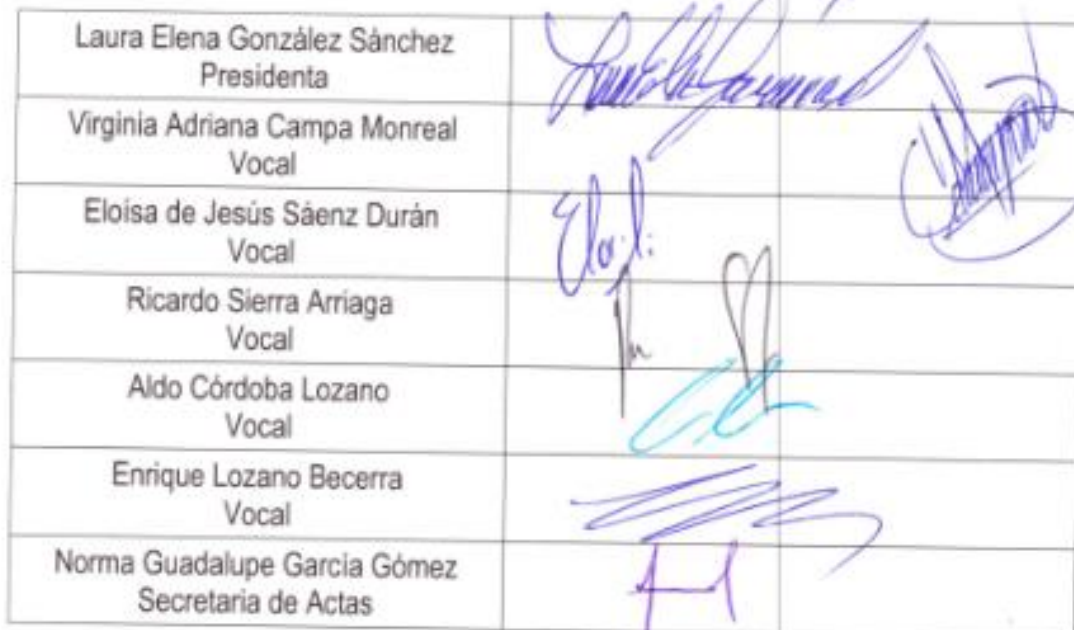 Laura Elena González Sánchez
Presidenta
Virginia Adriana Campa Monreal
Vocal
Eloísa de Jesús Sáenz Durán
Vocal
Ricardo Sierra Arriaga
Vocal
Aldo Córdoba Lozano
Vocal
Enrique Lozano Becerra
Vocal
Norma Guadalupe García Gómez
Secretaria de Actas